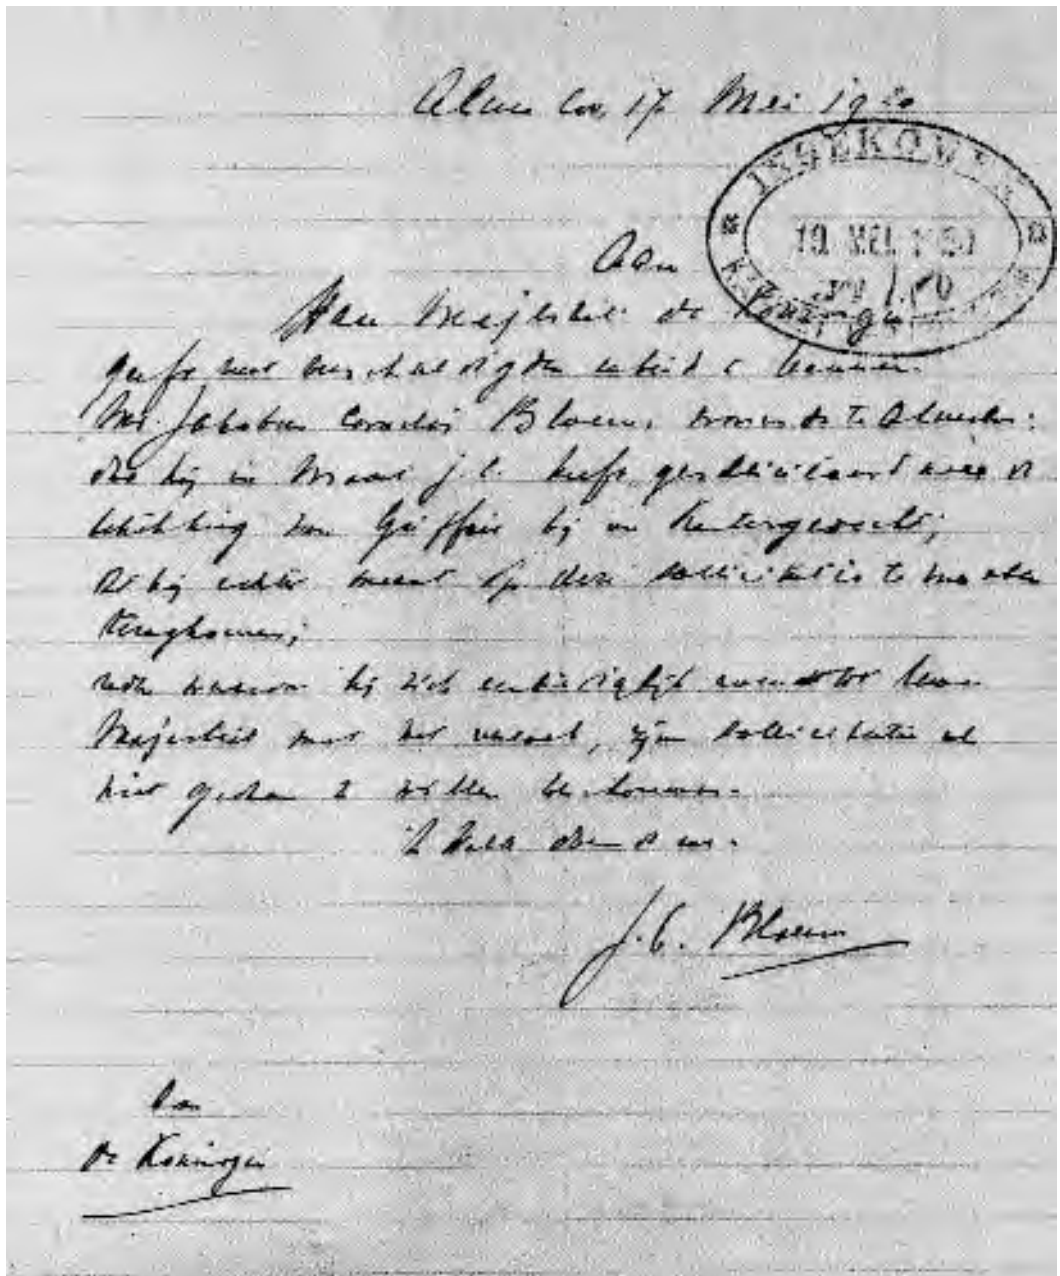 17 Mei 1920
INGEKOMEN
19 MEI 1920
Aan
Hare Majesteit de Koningin
geeft met verschuldigden eerbied te kennen
Mr. Jakobus Cornelis Bloem, wonende te
dat hij in Maart j.l. heeft gesolliciteerd naar de
betrekking van Griffier bij een Kantongerecht;
dat hij echter meent op deze sollicitatie te moeten
terugkomen;
redenen waarom hij zich eerbiediglijk wendt tot Uwe
Majesteit met het verzoek, zijn sollicitatie als
niet gedaan te willen beschouwen.
't Welk doende enz.
J.C. Bloem
Aan
de Koningin